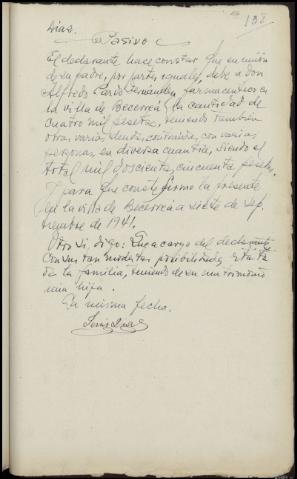 132
Dias.
Pasivo
El declarante hace constar que en unión
de su padre, por partes iguales, debe a Don
Alfredo Pardo Fernández, farmacéutico en
la villa de Becerreá, la cantidad de
cuatro mil pesetas, teniendo también
otras varias deudas, contraidas, con varias
personas en diversa cuantía, siendo el
total mil doscientas cincuenta pesetas.
Y para que conste firmo la presente
en la villa de Becerreá a siete de sep-
tiembre de 1941.
Otro si, digo: Que a cargo del declarante
con sus tan modestas posibilidades está
de la familia, teniendo de su matrimonio
una hija.
En misma fecha.